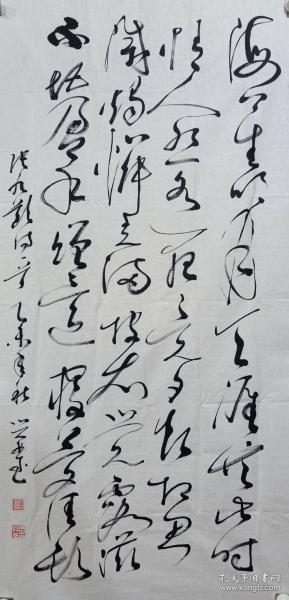 海上生明月天涯共此时
情人怨遥夜竟夕起相思
灭烛怜光满披衣觉露滋
不堪盈手赠还寝梦佳期
张九龄诗一首乙未年秋
孔夫子旧书网